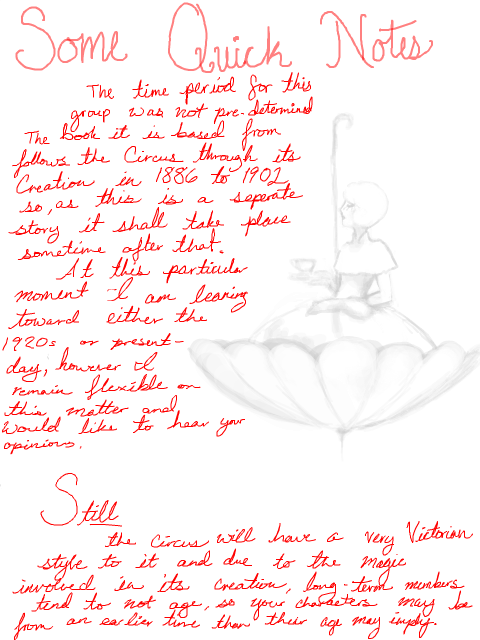 Some Quick Notes
The time period for this
group was not pre-determined
The book it is based from
follows the Circus through its
Creation in 1886 to 1902
so, as this is a seperate
story it shall take place
sometime after that.
At this particular
moment I am leaning
toward either the
1920s or present-
day, however I
remain flexible on
this matter and
would like to hear your
opinions.
Still
the Circus will have a very Victorian
style to it and due to the magic
involved in its creation, long-term members
tend to not age, so your characters may be
from an earlier time than their age may imply.